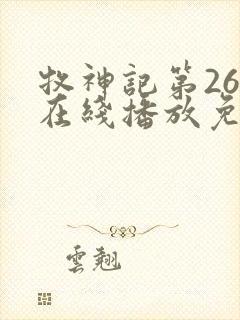 牧神記第26
在綫播放免
雲翹